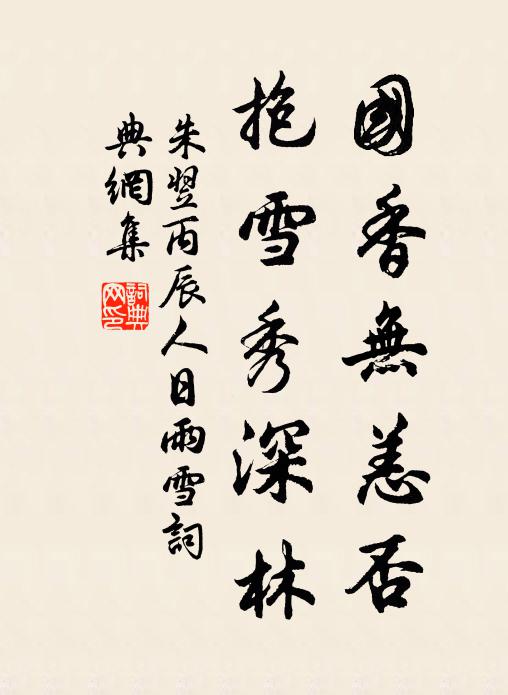 國香無恙否
抱雪秀深林
朱翌丙辰人日雨雪詞
典網集
詞典網印